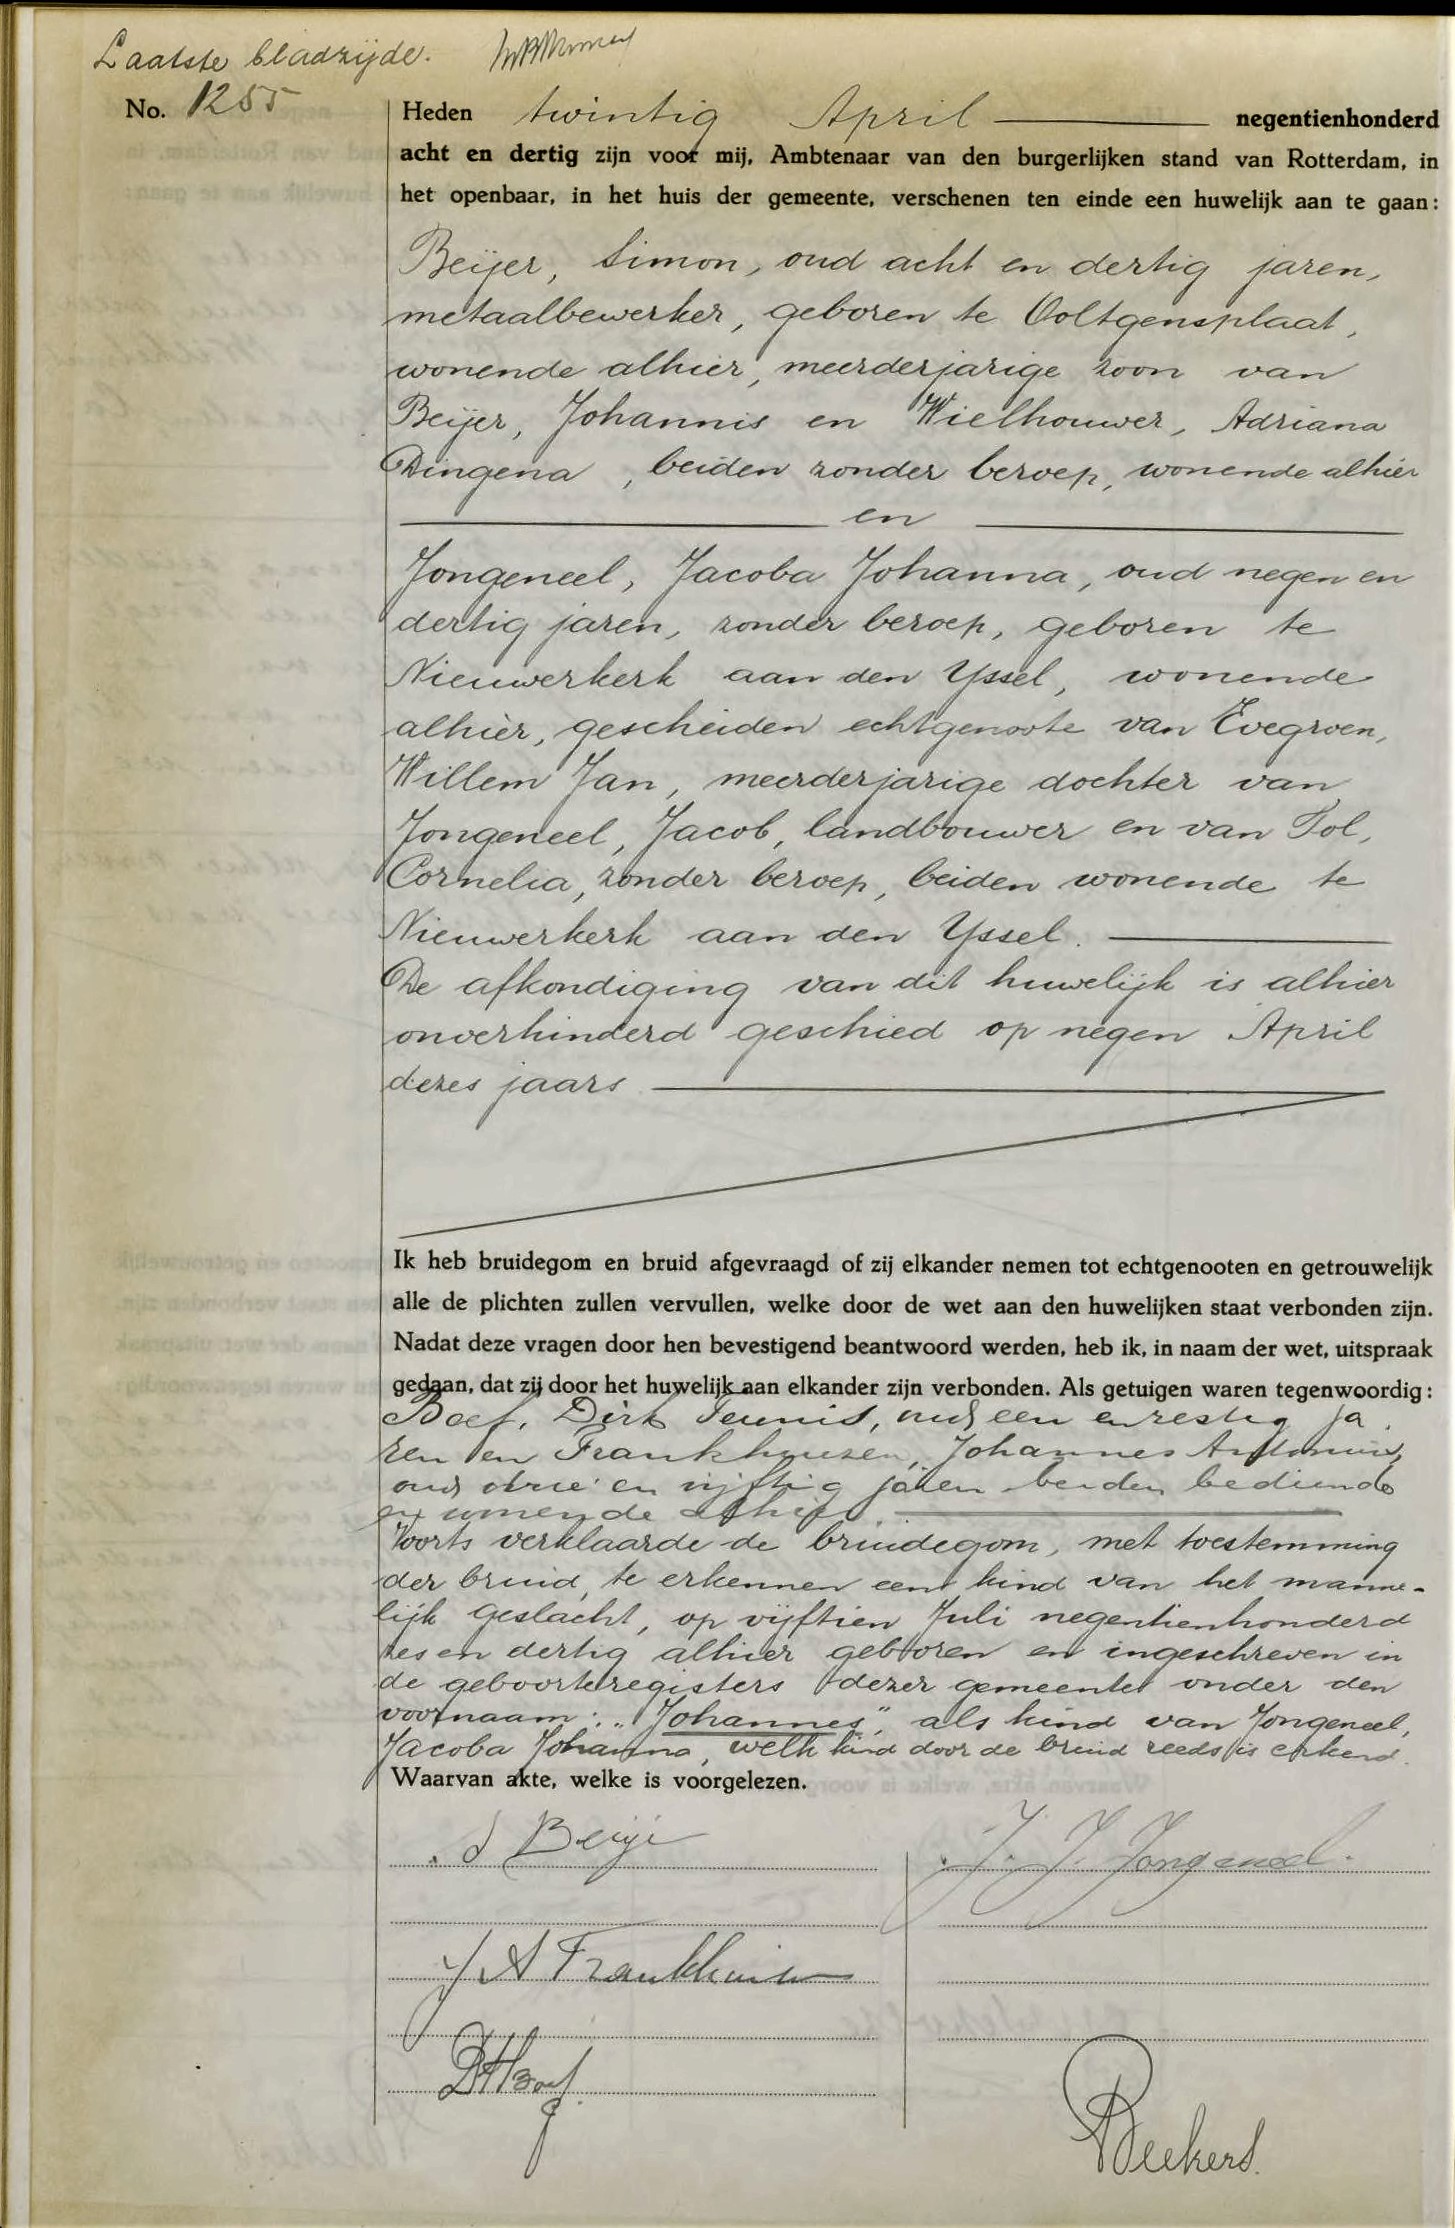 Laatste bladzijde.
No. 1255
Heden twintig April negentienhonderd
acht en dertig zijn voor mij, Ambtenaar van den burgerlijken stand van Rotterdam, in
het openbaar, in het huis der gemeente, verschenen ten einde een huwelijk aan te gaan:
Beijer, Simon, oud acht en dertig jaren,
metaalbewerker, geboren te Ooltgensplaat,
wonende alhier, meerderjarige zoon van
Beijer, Johannis en Wielhouwer, Adriana
Dingena, beiden zonder beroep, wonende alhier
en
Jongeneel, Jacoba Johanna, oud negen en
dertig jaren, zonder beroep, geboren te
Nieuwerkerk aan den Yssel, wonende
alhier, gescheiden echtgenoote van Evegroen,
Willem Jan, meerderjarige dochter van
Jongeneel, Jacob, landbouwer en van Tol,
Cornelia, zonder beroep, beiden wonende te
Nieuwerkerk aan den Yssel.
De afkondiging van dit huwelijk is alhier
onverhinderd geschied op negen April
dezes jaars
Ik heb bruidegom en bruid afgevraagd of zij elkander nemen tot echtgenooten en getrouwelijk
alle de plichten zullen vervullen, welke door de wet aan den huwelijken staat verbonden zijn.
Nadat deze vragen door hen bevestigend beantwoord werden, heb ik, in naam der wet, uitspraak
gedaan, dat zij door het huwelijk aan elkander zijn verbonden. Als getuigen waren tegenwoordig:
Boef, Dirk Teunis, oud een en zestig ja
ren en Frankhuizen, Johannes Antonius,
oud drie en vijftig jaren beiden bediende
en wonende alhier.
Voorts verklaarde de bruidegom, met toestemming
der bruid, te erkennen een kind van het manne-
lijk geslacht, op vijftien Juli negentienhonderd
zes en dertig alhier geboren en ingeschreven in
de geboorteregisters dezer gemeente onder den
voornaam: "Johannes", als kind van Jongeneel,
Jacoba Johanna, welk kind door de bruid reeds is erkend.
Waarvan akte, welke is voorgelezen.
S Beije
J. J. Jongeneel.
J A Frankhuizen
DTBoef.
Deekers.